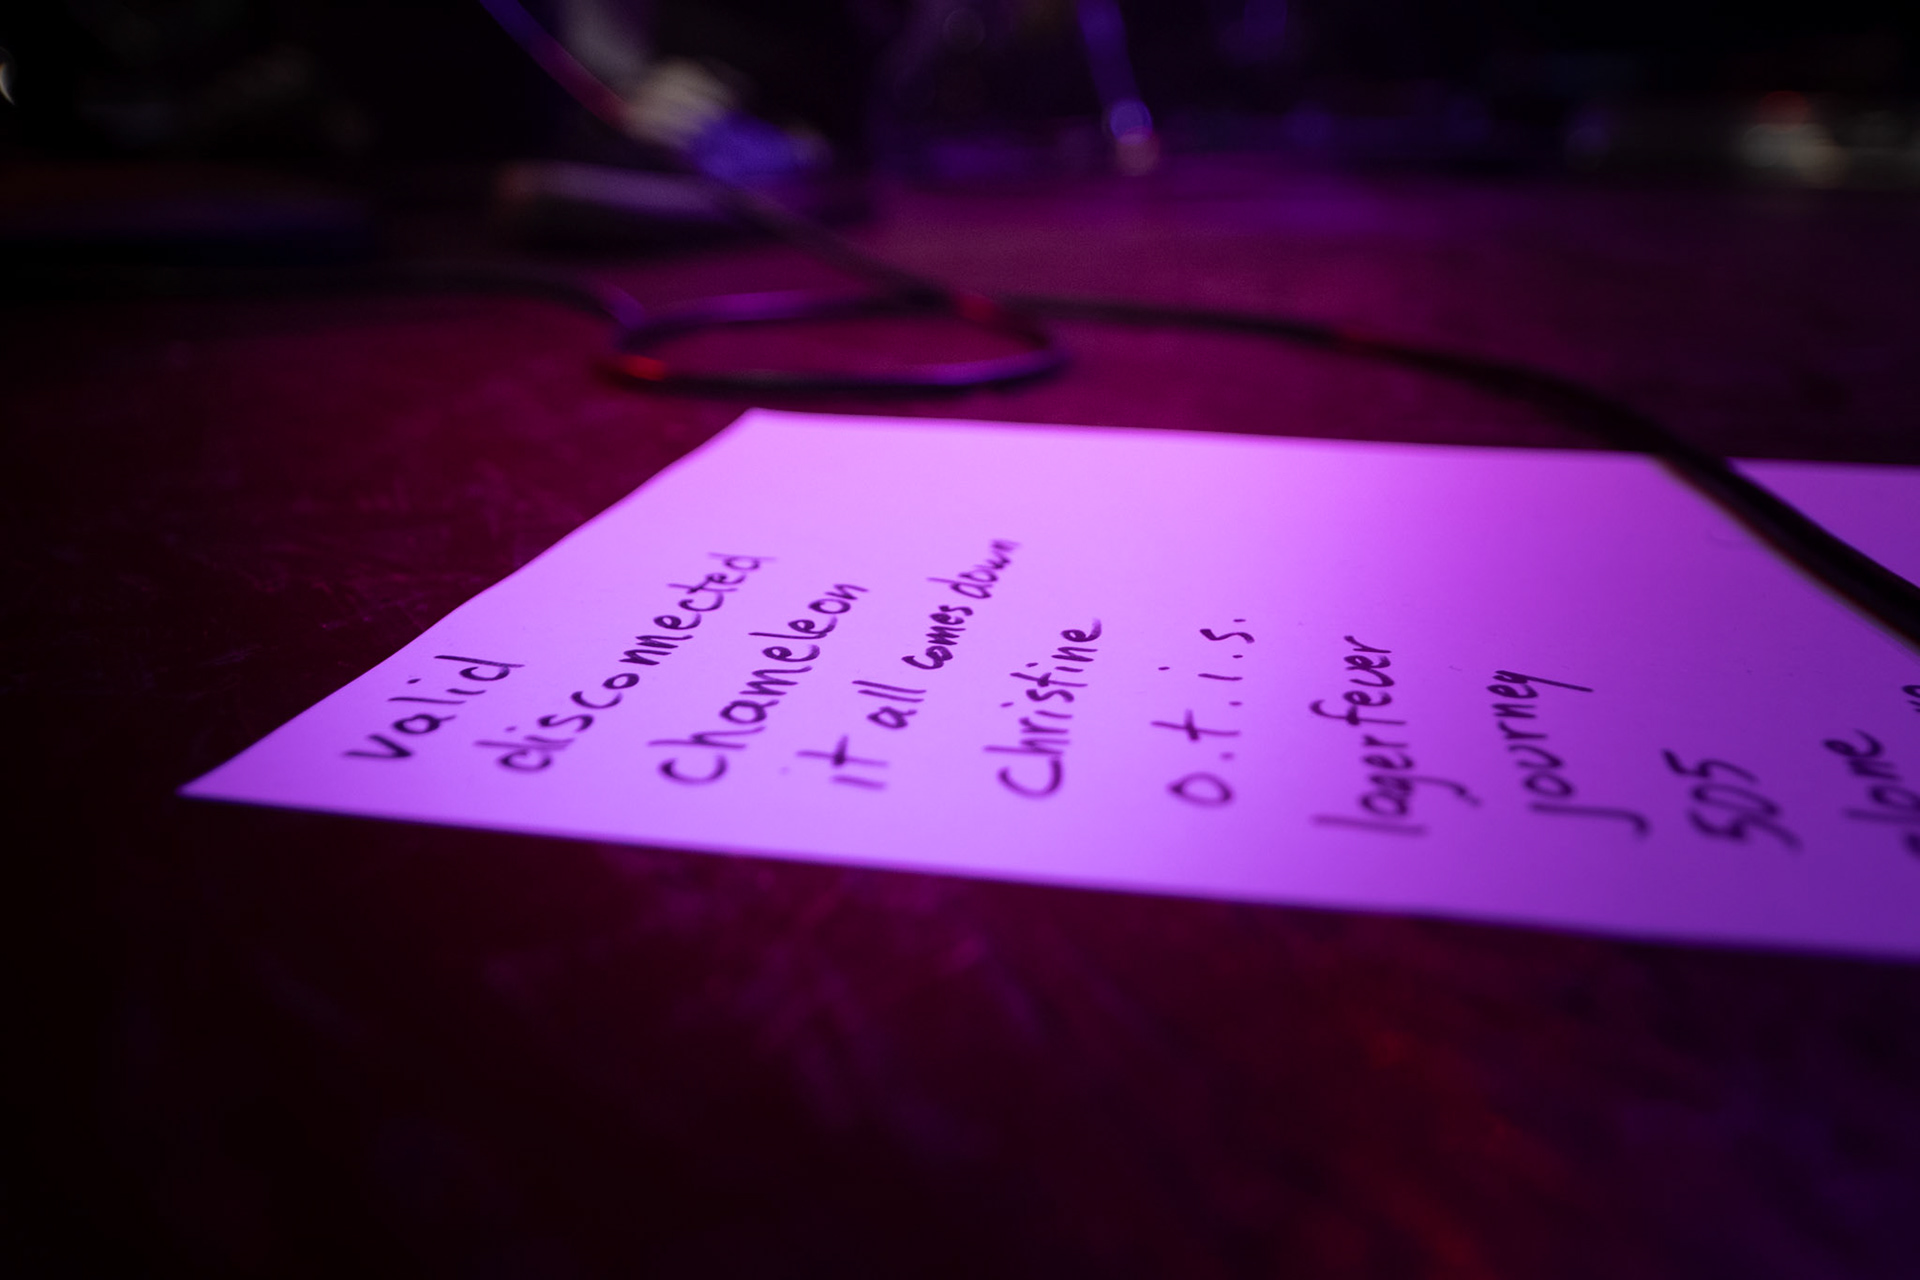 valid
disconnected
Chameleon
it all comes down
Christine
o.t.i.s.
lagerfever
journey
505